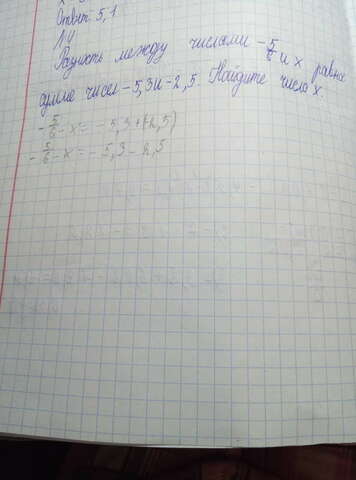 Ответ: 5,1
14
Разность между числами -5/6 и x равна
сумме чисел -5,3 и -2,5. Найдите число x.
-5/6 - x = -5,3 + (-2,5)
-5/6 - x = -5,3 - 2,5